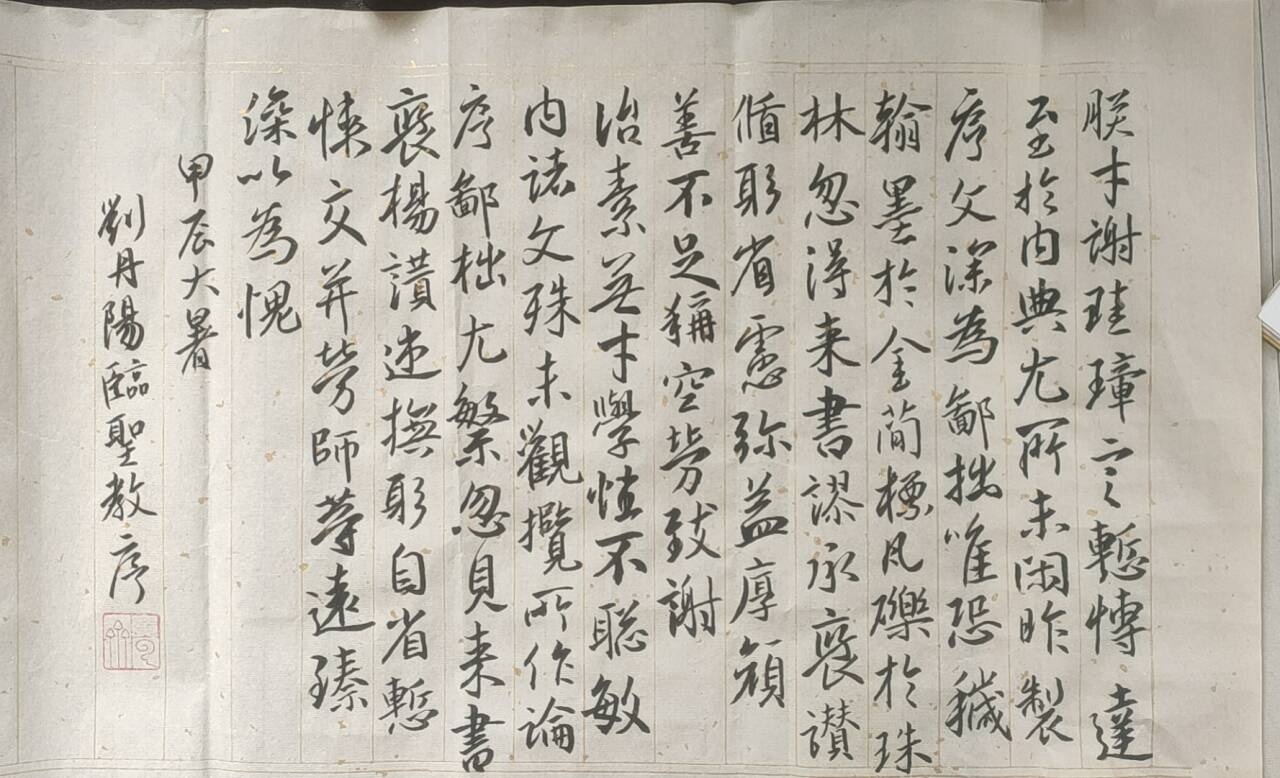 朕才謝珪璋言慙博達
至於內典尤所未閑昨製
序文深為鄙拙唯恐穢
翰墨於金簡標瓦礫於珠
林忽得来書謬承褒讃
循躬省慮弥益厚顏
善不足稱空勞致謝
治素無才學性不聡敏
內諸文殊未觀攬所作論
序鄙拙尤繁忽見来書
褒揚讃述撫躬自省慙
悚交并勞師等遠臻
深以為愧
甲辰大暑
劉丹陽臨聖教序